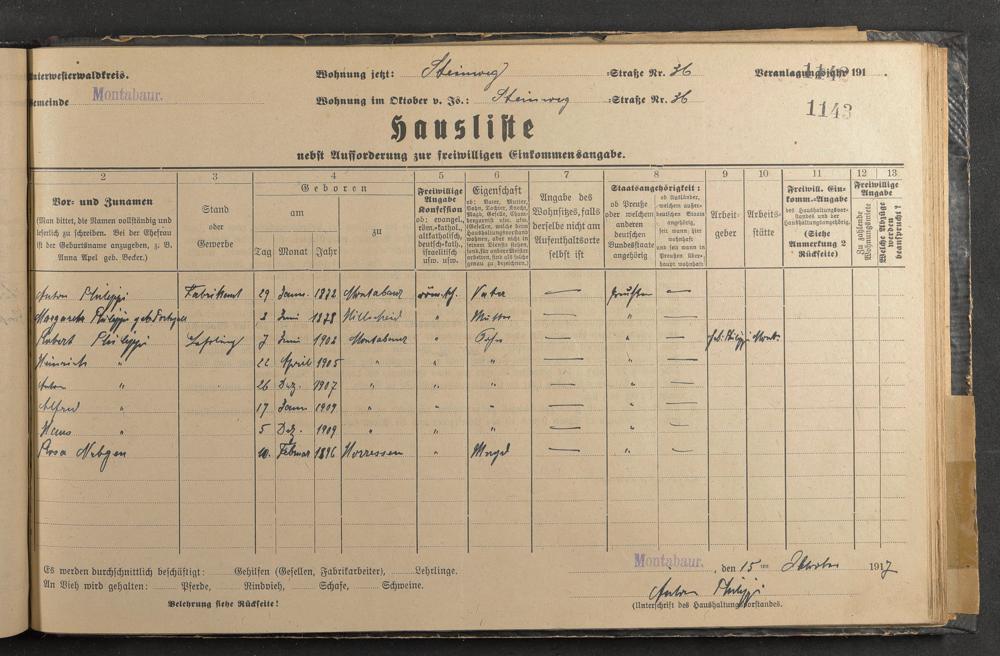 Unterwesterwaldkreis. Wohnung jetzt: Steinweg Straße Nr. 36 Veranlagungsjahr 191
Gemeinde Montabaur. Wohnung im Oktober v. Js.: Steinweg Straße Nr. 36
1143
Hausliste
nebst Aufforderung zur freiwilligen Einkommensangabe.
2 3 4 5 6 7 8 9 10 11 12 13
Vor- und Zunamen
(Man bittet, die Namen vollständig und
leserlich zu schreiben. Bei der Ehefrau
ist der Geburtsname anzugeben, z. B.
Anna Apel geb. Becker.)
Stand
oder
Gewerbe
Geboren
am zu
Tag Monat Jahr
Freiwillige
Angabe
Konfession
ob: evangel.,
röm.-kathol.,
altkatholisch,
deutsch-kath.,
israelitisch
usw. usw.
Eigenschaft
ob: Vater, Mutter,
Sohn, Tochter, Knecht,
Magd, Geselle,
Angabe des
Wohnsitzes, falls
derselbe nicht am
Aufenthaltsorte
selbst ist
Staatsangehörigkeit:
ob Preuße
oder welchem
anderen
deutschen
Bundesstaate
angehörig
ob Ausländer,
welchem außer-
deutschen Staate
angehörig,
seit wann hier
wohnhaft
und seit wann in
Preußen über-
haupt wohnhaft
Arbeit-
geber
Arbeits-
stätte
Freiwill. Ein-
komm.-Angabe
des Haushaltungsvor-
standes und der
Haushaltungsangehörig.
(Siehe
Anmerkung 2
Rückseite)
Freiwillige
Angabe
Zu zahlende
Wohnungsmiete
Welche Abzüge
werden
beansprucht?
Anton Philippi Fabrikant 29 Janu. 1872 Montabaur röm. kth. Vater — Preußen —
Margareta Philippi geb. 2 Juni 1878 Hillscheid " Mutter — " —
Robert Philippi Lehrling 7 Juni 1902 Montabaur " Sohn — " — Philippi Mont.
Heinrich " 22 April 1905 " " " — " —
Anton " 26 Dez. 1907 " " " — " —
Alfred " 17 Janu 1909 " " " — " —
Hans " 5 Dez. 1909 " " " — " —
Rosa Nebgen 10. Februar 1896 Horressen " Magd — " —
Es werden durchschnittlich beschäftigt: Gehilfen (Gesellen, Fabrikarbeiter), Lehrlinge.
An Vieh wird gehalten: Pferde, Rindvieh, Schafe, Schweine.
Belehrung siehe Rückseite!
Montabaur., den 15ten Oktober 1917
Anton Philippi
(Unterschrift des Haushaltungsvorstandes.